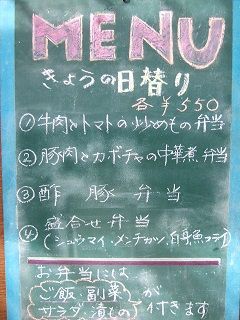 MENU
きょうの日替り
各￥550
①牛肉とトマトの炒めもの弁当
②豚肉とカボチャの中華煮弁当
③酢豚弁当
④盛合せ弁当
(シュウマイ・メンチカツ・白身魚フライ)
お弁当には
ご飯・副菜が
サラダ・漬もの付きます